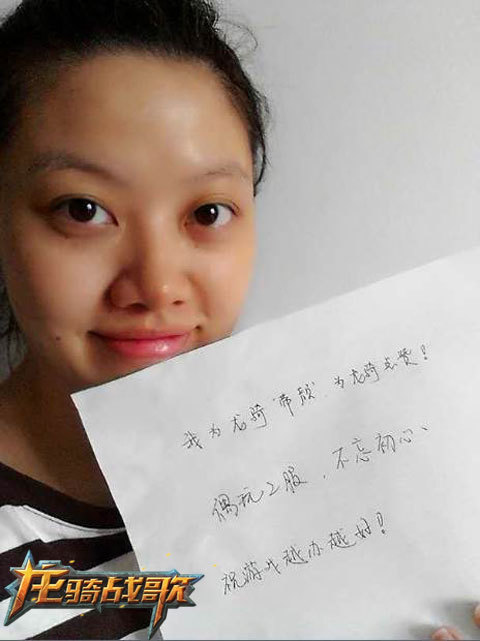 我为龙骑'带颜'为龙骑点赞！
偶玩2服，不忘初心、
祝游戏越办越好！
龙骑战歌